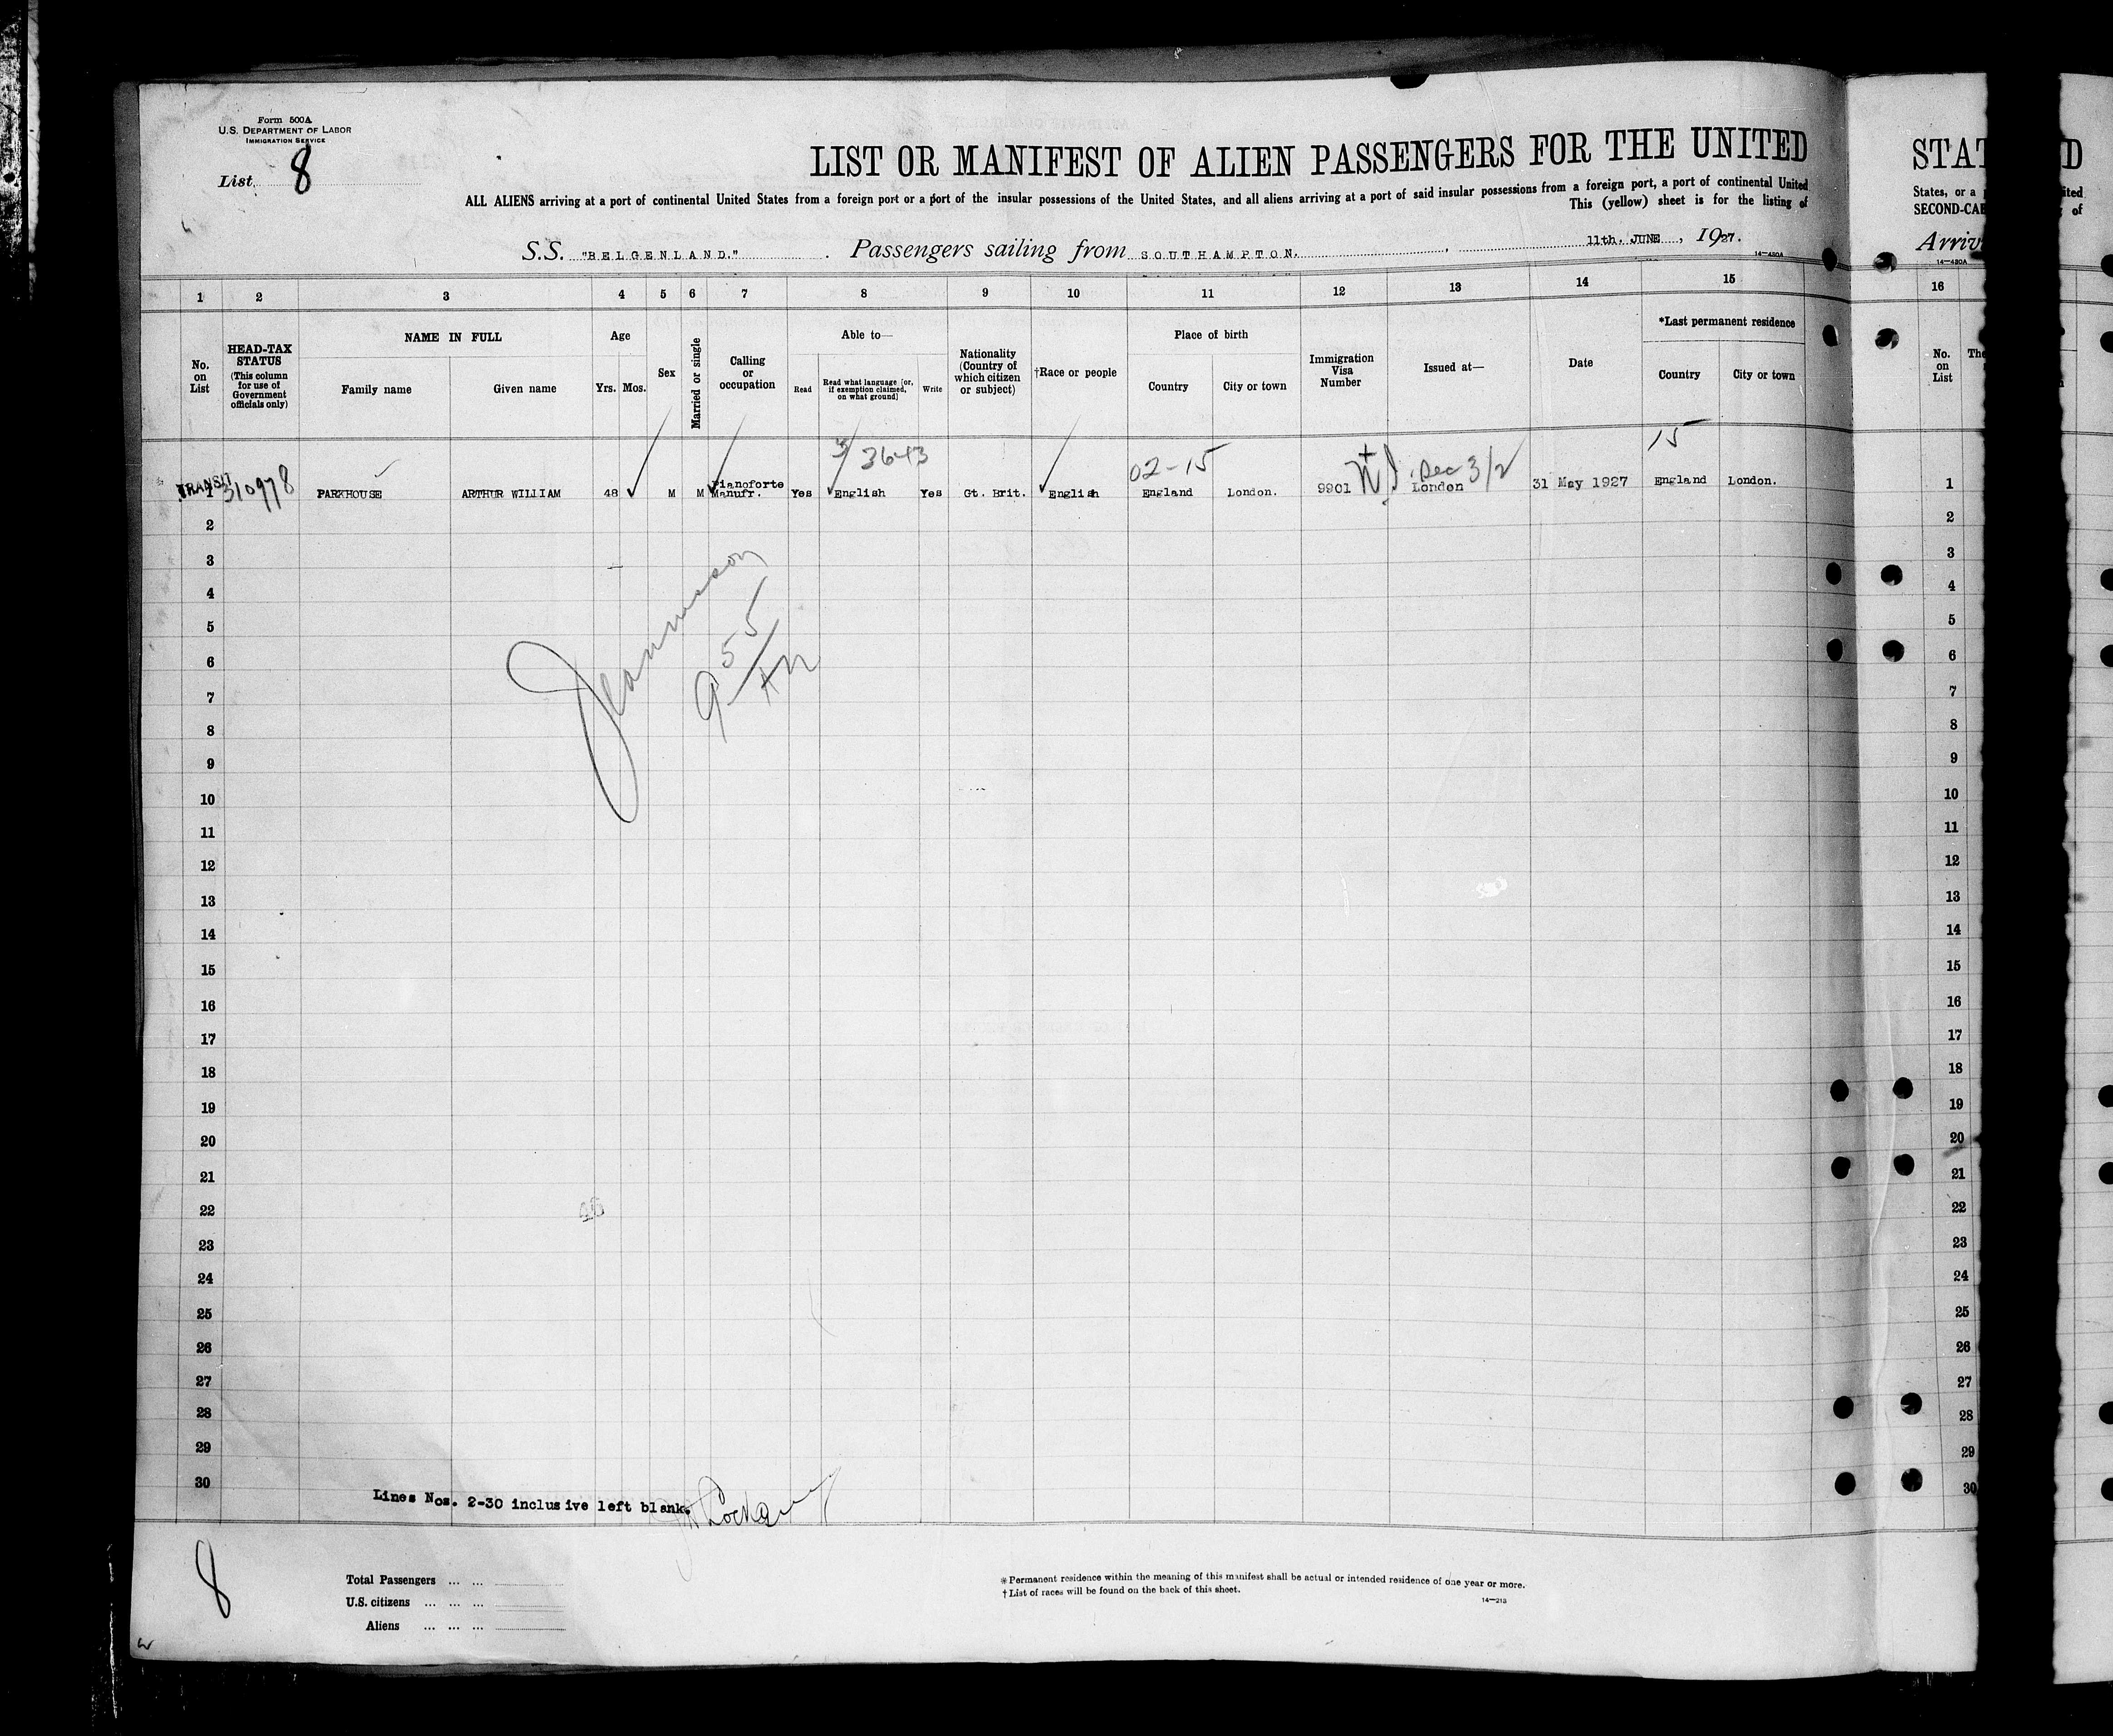 Form 500A
U.S. DEPARTMENT OF LABOR
IMMIGRATION SERVICE
List 8
LIST OR MANIFEST OF ALIEN PASSENGERS FOR THE UNITED
ALL ALIENS arriving at a port of continental United States from a foreign port or a port of the insular possessions of the United States, and all aliens arriving at a port of said insular possessions from a foreign port, a port of continental United
This (yellow) sheet is for the listing of
S.S. "BELGENLAND." Passengers sailing from SOUTHAMPTON. , 11th. JUNE , 1927.
14—480A
1 2 3 4 5 6 7 8 9 10 11 12 13 14 15
No. on List
HEAD-TAX STATUS (This column for use of Government officials only)
NAME IN FULL
Family name Given name
Age
Yrs. Mos.
Sex
Married or single
Calling or occupation
Able to—
Read
Read what language [or, if exemption claimed, on what ground]
Write
Nationality (Country of which citizen or subject)
†Race or people
Place of birth
Country City or town
Immigration Visa Number
Issued at—
Date
*Last permanent residence
Country City or town
3643 02-15 15
TRANSIT
1 310978 PARKHOUSE ARTHUR WILLIAM 48 M M Pianoforte Manufr. Yes English Yes Gt. Brit. English England London. 9901 London 31 May 1927 England London.
2
3
4
5
6
7
8
9
10
11
12
13
14
15
16
17
18
19
20
21
22
23
24
25
26
27
28
29
30
955
Lines Nos. 2-30 inclusive left blank.
8
Total Passengers ... ...
U.S. citizens ... ... ...
Aliens ... ... ...
*Permanent residence within the meaning of this manifest shall be actual or intended residence of one year or more.
†List of races will be found on the back of this sheet.
14—213
STAT
States, or a
SECOND-CAB
Arriv
14—480A
16
No. on List
The
1
2
3
4
5
6
7
8
9
10
11
12
13
14
15
16
17
18
19
20
21
22
23
24
25
26
27
28
29
30
D
ited
of